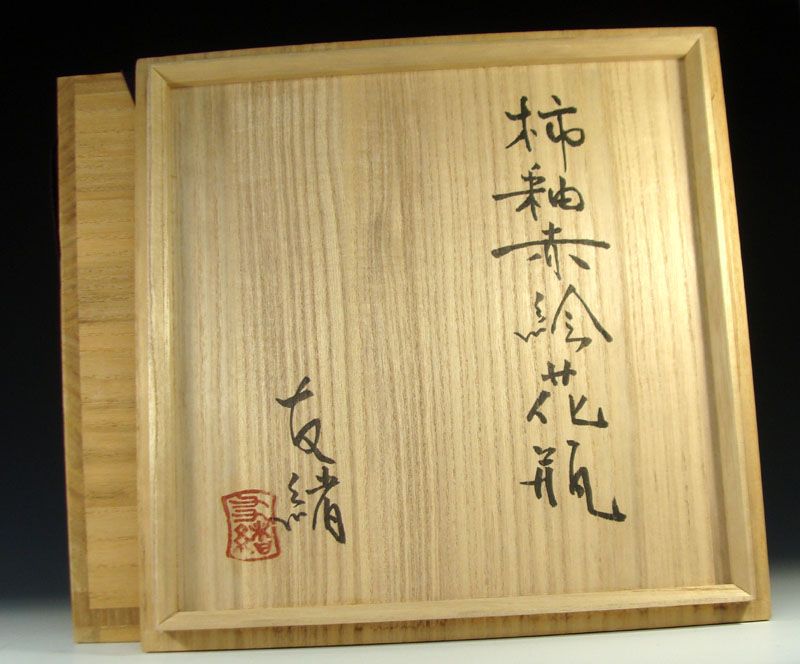 柿釉赤絵花瓶
友緒
友緒